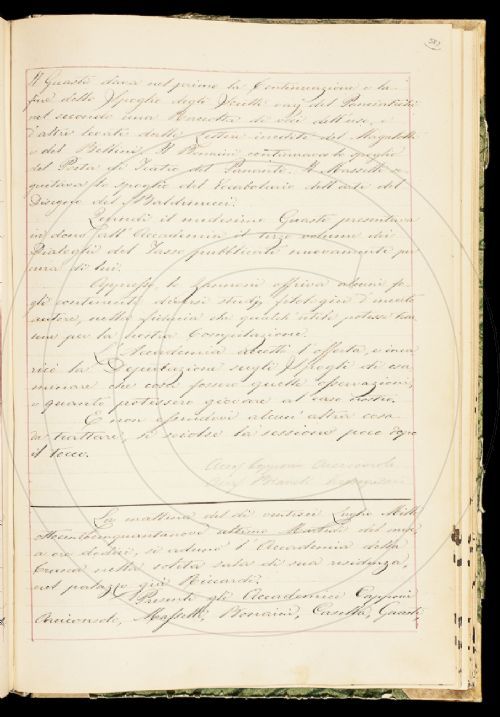 Il Guasti dava nel primo la Continuazione e la
fine dello Spoglio degli Scritti varj del Panciatichi
nel secondo una Raccolta di voci dell'uso, e
d'altre levate dalle Lettere inedite del Magalotti
e del Bellini. Il Bonaini continuava lo spoglio
del Poeta di Teatro del Pananti. Il Masselli
lo spoglio del Vocabolario dell'arte del
Disegno del Baldinucci.
Quindi il medesimo Guasti presentava
in dono all'Accademia il terzo volume dei
Dialoghi del Tasso pubblicati nuovamente per
cura di lui.
Appresso, lo Zannoni offriva alcuni fo-
gli contenenti diversi studj filologici d'incerto
autore, nella fiducia che qualch'utile potesse trar-
sene per la nostra Compilazione.
L'Accademia accettò l'offerta, e inca-
ricò la Deputazione sugli Spogli di esa-
minare che cosa fossero quelle osservazioni,
e quanto potessero giovare al caso nostro.
E non essendovi alcun'altra cosa
da trattare, si sciolse la sessione poco dopo
il tocco.
Capponi Arciconsolo
La mattina del dì ventisei Luglio Mille
ottocentocinquantanove ultimo Martedì del mese
a ore dodici, si adunò l'Accademia della
Crusca nella solita sala di sua residenza,
nel palazzo già Riccardi.
Presenti gli Accademici Capponi
Arciconsolo, Masselli, Bonaini, Casella, Guasti,